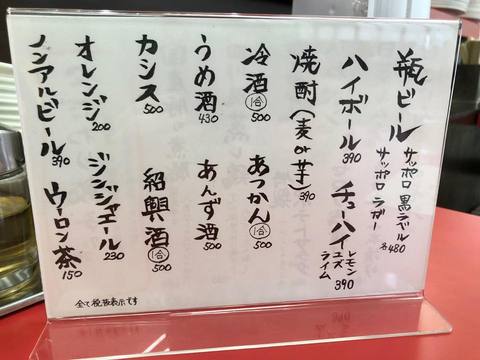 瓶ビール サッポロ黒ラベル サッポロラガー 各480
ハイボール 390 チューハイ レモン ユズ ライム 390
焼酎(麦or芋) 390
冷酒 1合 500 あつかん 1合 500
うめ酒 430 あんず酒 500
カシス 500 紹興酒 1合 500
オレンジ 200 ジンジャエール 230
ノンアルビール 390 ウーロン茶 150
全て税抜表示です